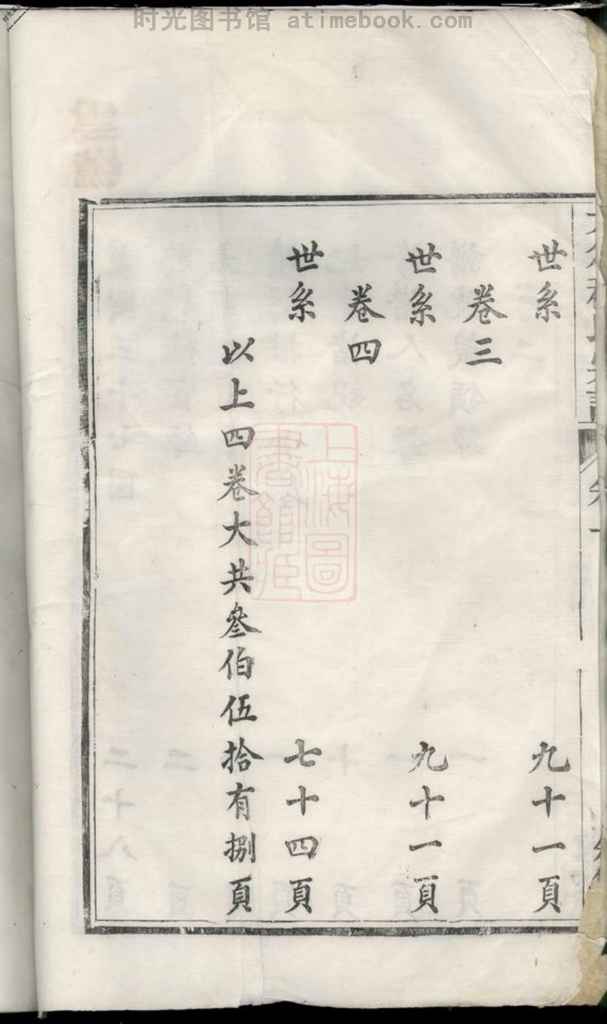 时光图书馆 atimebook.com
世系 九十一頁
卷三
世系 九十一頁
卷四
世系 七十四頁
以上四卷大共叄伯伍拾有捌頁
上海圖書館藏